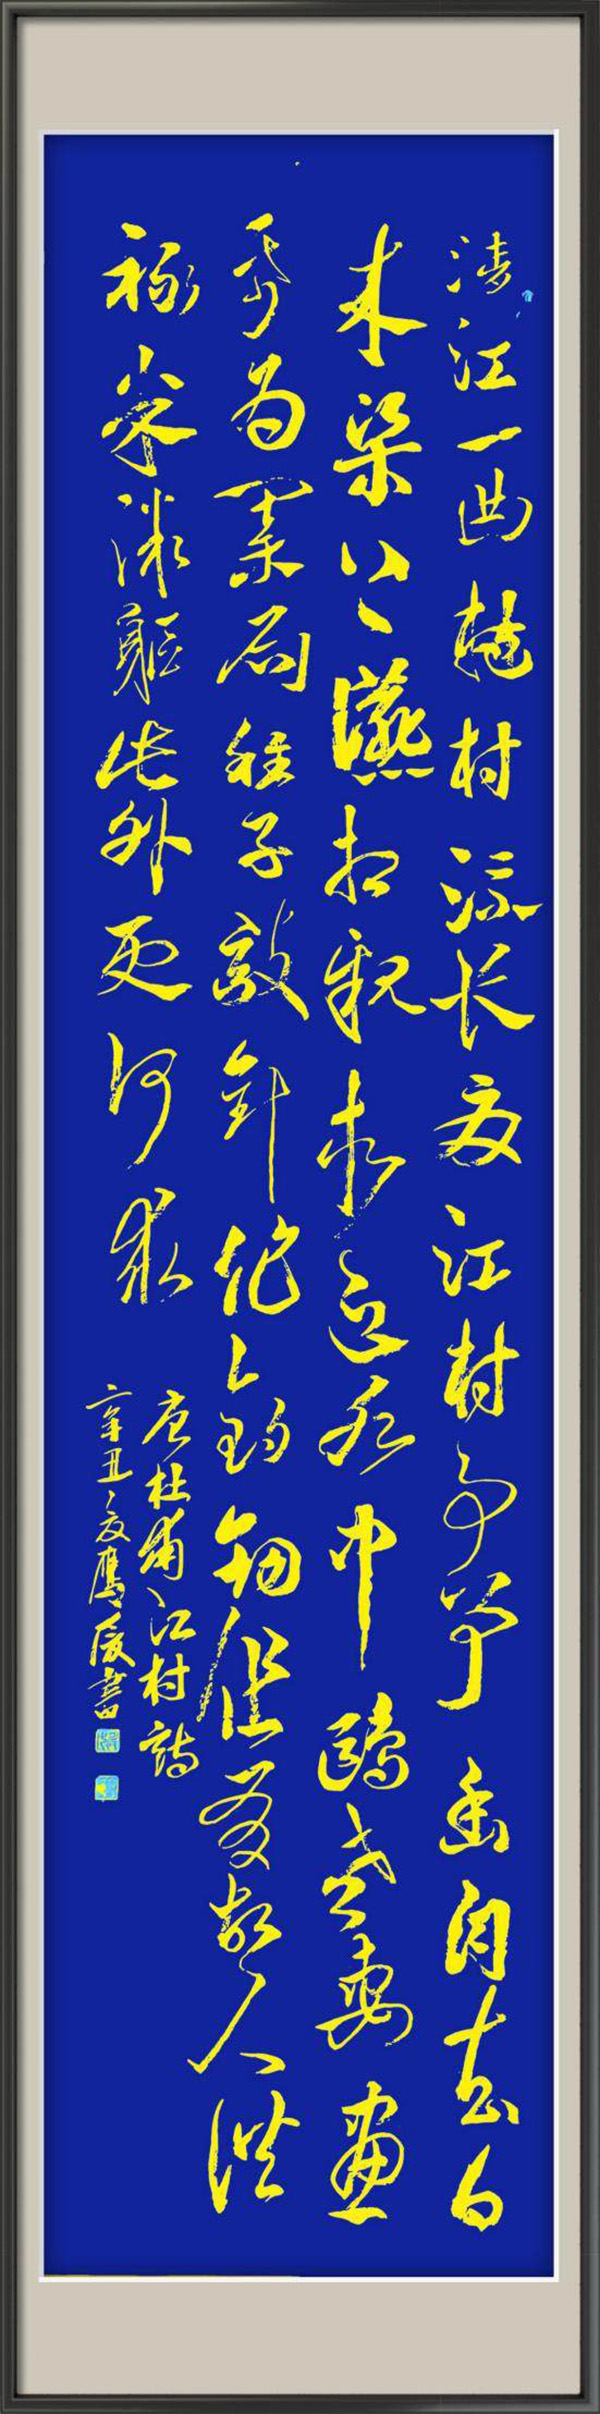 清江一曲抱村流长夏江村事事幽自去自
来梁上燕相親相近水中鷗老妻畫
帋为棊局稚子敲針作钓钩但有故人供
禄米微躯此外更何求
唐杜甫江村诗
辛丑夏鹰书